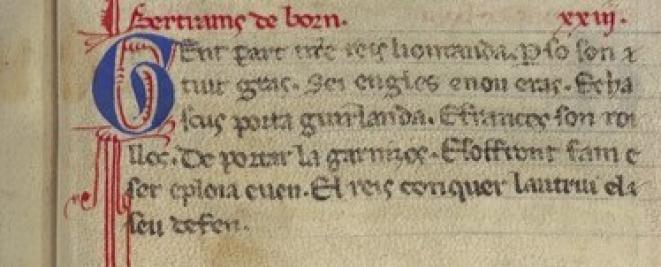 Bertrams de born. xxiij.
GEnt part nr̄e reis liouranda. Pso son
tuit gras. Sei engles enou eras. Echa
scus porta guirlanda. Efrances son roi
llos. De portar la garnizos. Esoffront fam e
ser eploia euen. El reis conquer lautrui ela
seu defen.